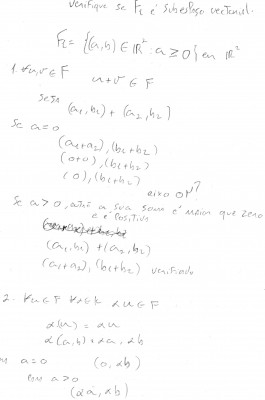 verifique se F₁ é subespaço vectorial.
F₁ = {(a,b) ∈ ℝ² : a ≥ 0} en ℝ²
1. ∀u,v ∈ F u+v ∈ F
seja (a₁,b₁) + (a₂,b₂)
Se a=0
(a₁+a₂),(b₁+b₂)
(0+0),(b₁+b₂)
(0),(b₁+b₂)
eixo OY?
Se a>0, a sua soma é maior que zero
e é positiva
(a₁,b₁) + (a₂,b₂)
(a₁+a₂),(b₁+b₂) verificado
2. ∀u∈F ∀α∈K αu∈F
α(u) = αu
α(a,b) = αa, αb
a=0 (0, αb)
para a>0
(αa, αb)